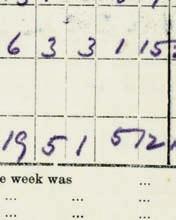 6 3 3 1 15
19 5 1 5 12
e week was ...
... ... ...
... ... ...